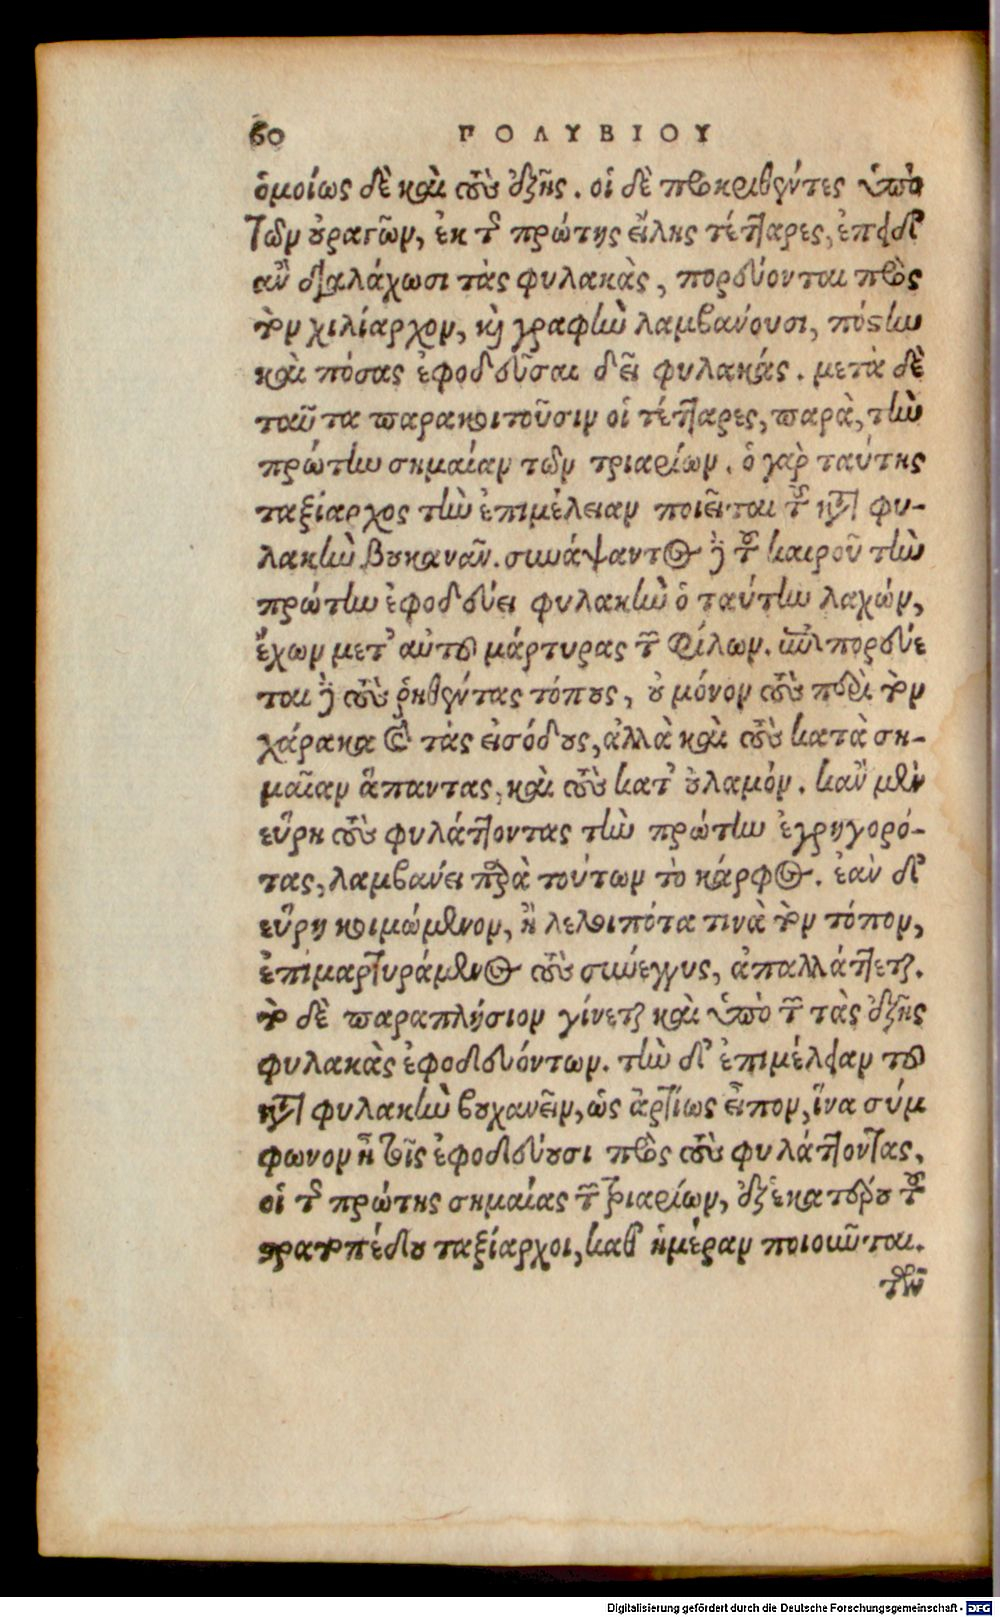 60 ΠΟΛΥΒΙΟΥ
ὁμοίως δὲ καὶ τοὺς ἑξῆς. οἱ δὲ προκριθέντες ὑπὸ
τῶν οὐραγῶν, ἐκ τῆς πρώτης εἴλης τέτταρες, ἐπειδ᾽
ἂν διαλάχωσι τὰς φυλακὰς, πορεύονται πρὸς
τὸν χιλίαρχον, καὶ γραφὴν λαμβάνουσι, πόστην
καὶ πόσας ἐφοδεῦσαι δεῖ φυλακάς. μετὰ δὲ
ταῦτα παρακοιτοῦσιν οἱ τέτταρες, παρὰ, τὴν
πρώτην σημαίαν τῶν τριαρίων. ὁ γὰρ ταύτης
ταξίαρχος τὴν ἐπιμέλειαν ποιεῖται τοῦ κατὰ φυ-
λακὴν βουκανᾶν. συνάψαντος δὲ τοῦ καιροῦ τὴν
πρώτην ἐφοδεύει φυλακὴν ὁ ταύτην λαχών,
ἔχων μετ᾽ αὐτοῦ μάρτυρας τῶν φίλων. ἐπιπορεύε
ται δὲ τοὺς ῥηθέντας τόπους, οὐ μόνον τοὺς περὶ τὸν
χάρακα καὶ τὰς εἰσόδους, ἀλλὰ καὶ τοὺς κατὰ ση-
μαῖαν ἅπαντας, καὶ τοὺς κατ᾽ οὐλαμόν. κἂν μὲν
εὕρῃ τοὺς φυλάττοντας τὴν πρώτην ἐγρηγορό-
τας, λαμβάνει παρὰ τούτων τὸ κάρφος. ἐὰν δ᾽
εὕρῃ κοιμώμενον, ἢ λελοιπότα τινὰ τὸν τόπον,
ἐπιμαρτυράμενος τοὺς σύνεγγυς, ἀπαλλάττεται.
τὸ δὲ παραπλήσιον γίνεται καὶ ὑπὸ τῶν τὰς ἑξῆς
φυλακὰς ἐφοδευόντων. τὴν δ᾽ ἐπιμέλειαν τοῦ
κατὰ φυλακὴν βουχανεῖν, ὡς ἀρτίως εἶπον, ἵνα σύμ
φωνον ᾖ τοῖς ἐφοδεύουσι πρὸς τοὺς φυλάττοντας,
οἱ τῆς πρώτης σημαίας τῶν τριαρίων, ἐξ ἑκατέρου τοῦ
στρατοπέδου ταξίαρχοι, καθ ἡμέραν ποιοῦνται.
τῶν
Digitalisierung gefördert durch die Deutsche Forschungsgemeinschaft - DFG